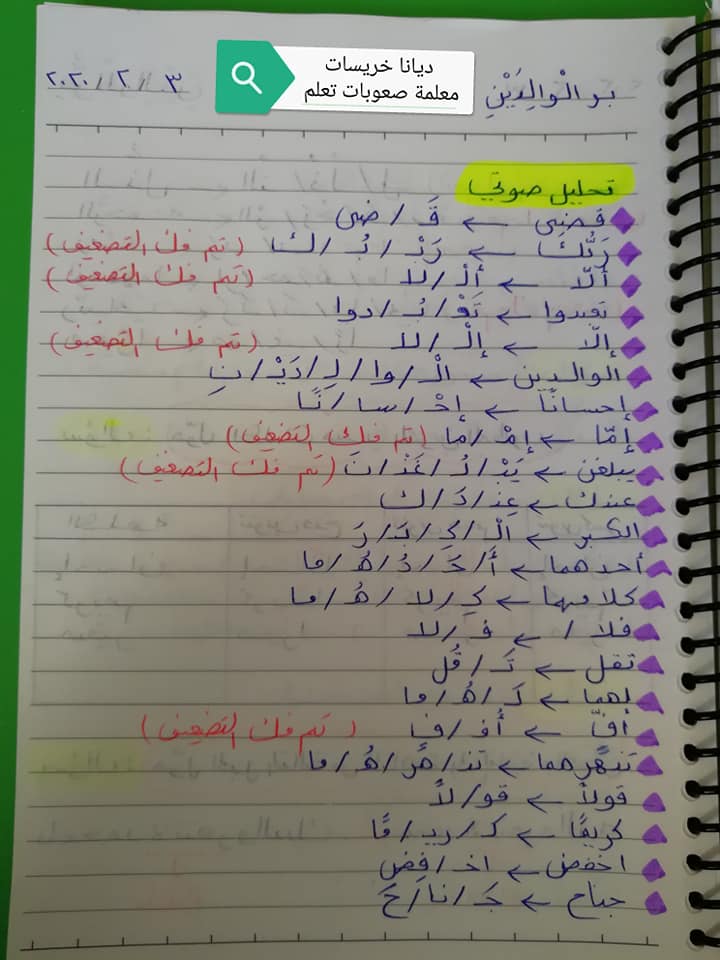 ديانا خريسات
معلمة صعوبات تعلم
بر الْوالِدَيْنِ ٣ / ٢ / ٢٠٢٠
تحليل صوتي
قضى ← قَـ / ضى
رَبُّكَ ← رَبْـ / بُـ / كَ (تم فك التضعيف)
ألّا ← ألْـ / لا (تم فك التضعيف)
تعبدوا ← تَعْـ / بُـ / دوا
إلّا ← إلْـ / لا (تم فك التضعيف)
الوالدين ← الْـ / وا / لِـ / دَيْـ / نِ
إحسانًا ← إحْـ / سا / نًا
إمّا ← إمْـ / ما (تم فك التضعيف)
يبلغن ← يَبْـ / لُـ / غَنْـ / نَ (تم فك التضعيف)
عندك ← عِنـ / دَ / كَ
الكبر ← الْـ / كِـ / بَـ / رَ
أحدهما ← أَ / حَـ / دُ / هُـ / ما
كلاهما ← كِـ / لا / هُـ / ما
فلا / ← فـَ / لا
تقل ← تَـ / قُل
لهما ← لَـ / هُـ / ما
أفّ ← أُفـ / ف (تم فك التضعيف)
تنهرهما ← تنـ / هَر / هُـ / ما
قولاً ← قو / لاً
كريمًا ← كـَ / ريـ / مًا
اخفض ← اخـ / فِض
جناح ← جَـ / نا / حَ